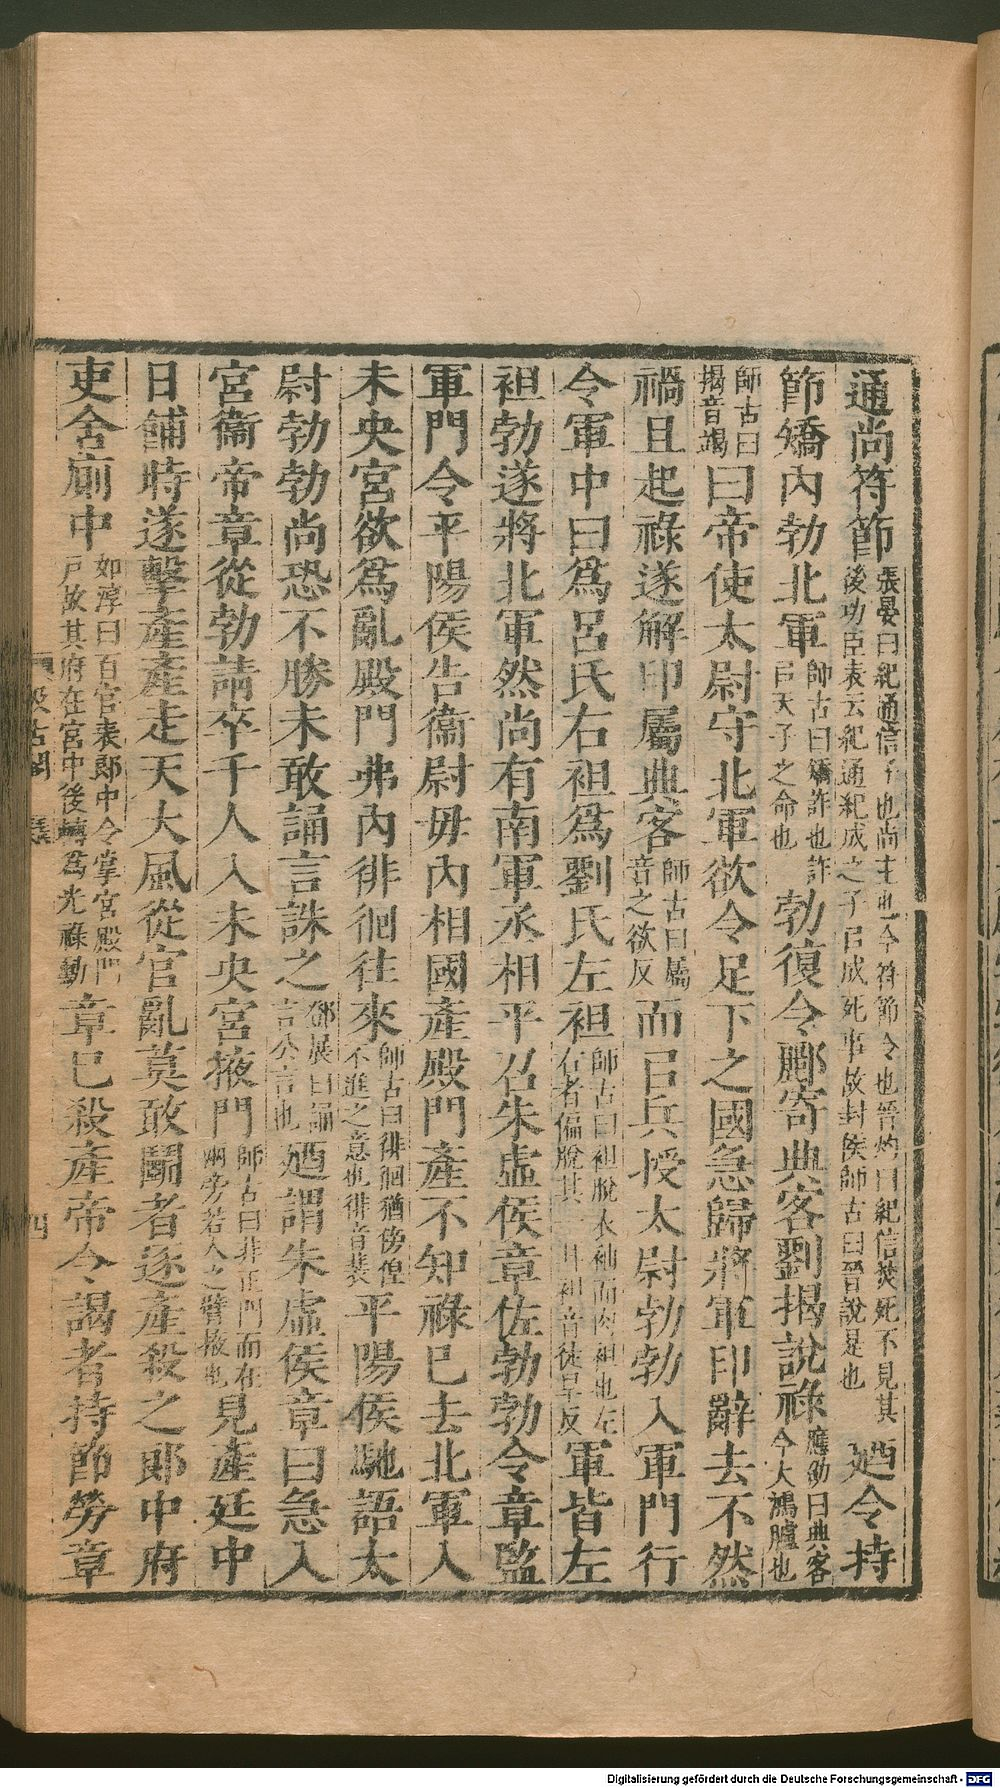 通尚符節張晏曰紀通信子也尚主也今符節令也晉灼曰紀信焚死不見其後功臣表云紀通紀成之子㠯成死事故封侯師古曰晉說是也廼令持
節矯內勃北軍師古曰矯詐也詐㠯天子之命也勃復令酈寄典客劉揭說祿應劭曰典客今大鴻臚也
師古曰揭音竭曰帝使太尉守北軍欲令足下之國急歸將軍印辭去不然
禍且起祿遂解印屬典客師古曰屬音之欲反而㠯兵授太尉勃勃入軍門行
令軍中曰爲呂氏右袒爲劉氏左袒師古曰袒脫衣袖而肉袒也左右者偏脫其一耳袒音徒旱反軍皆左
袒勃遂將北軍然尚有南軍丞相平召朱虛侯章佐勃勃令章監
軍門令平陽侯告衞尉毋內相國產殿門產不知祿已去北軍入
未央宮欲爲亂殿門弗內徘徊往來師古曰徘徊猶傍偟不進之意也徘音裴平陽侯馳語太
尉勃勃尚恐不勝未敢誦言誅之鄧展曰誦言公言也廼謂朱虛侯章曰急入
宮衞帝章從勃請卒千人入未央宮掖門師古曰非正門而在兩旁若人之臂掖也見產廷中
日餔時遂擊產產走天大風從官亂莫敢鬬者逐產殺之郎中府
吏舍廁中如淳曰百官表郎中令掌宮殿門戸故其府在宮中後轉爲光祿勳章已殺產帝令謁者持節勞章
汲古閣
四
Digitalisierung gefördert durch die Deutsche Forschungsgemeinschaft - DFG